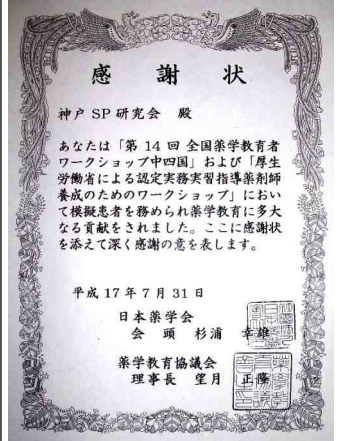 感謝状
神戸 SP 研究会 殿
あなたは「第 14 回 全国薬学教育者
ワークショップ中四国」および「厚生
労働省による認定実務実習指導薬剤師
養成のためのワークショップ」におい
て模擬患者を務められ薬学教育に多大
なる貢献をされました。ここに感謝状
を添えて深く感謝の意を表します。
平成 17 年 7 月 31 日
日本薬学会
会 頭 杉浦 幸雄
薬学教育協議会
理事長 望月 正隆